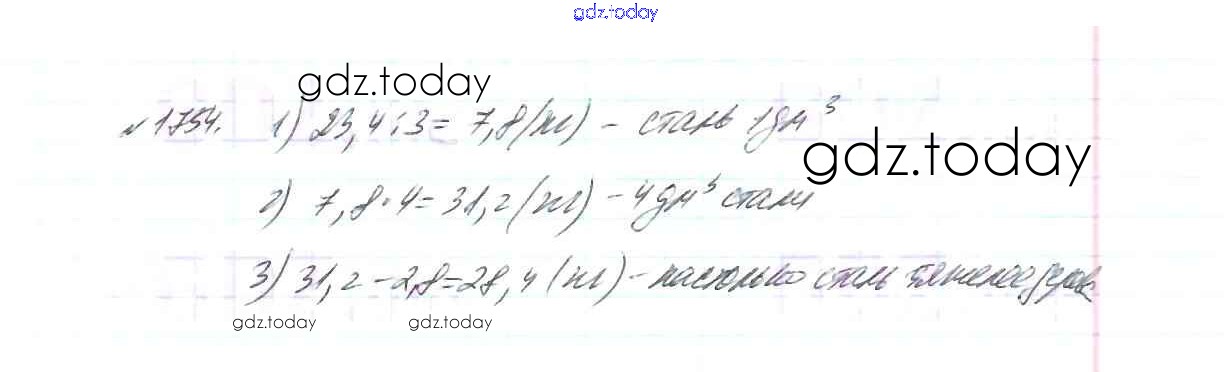 gdz.today
gdz.today
№1754. 1) 23,4:3= 7,8(кг) – сталь 1дм³
gdz.today
2) 7,8·4=31,2(кг) – 4дм³ стали
3) 31,2–2,8=28,4(кг) – настолько сталь тяжелее дерева
gdz.today gdz.today